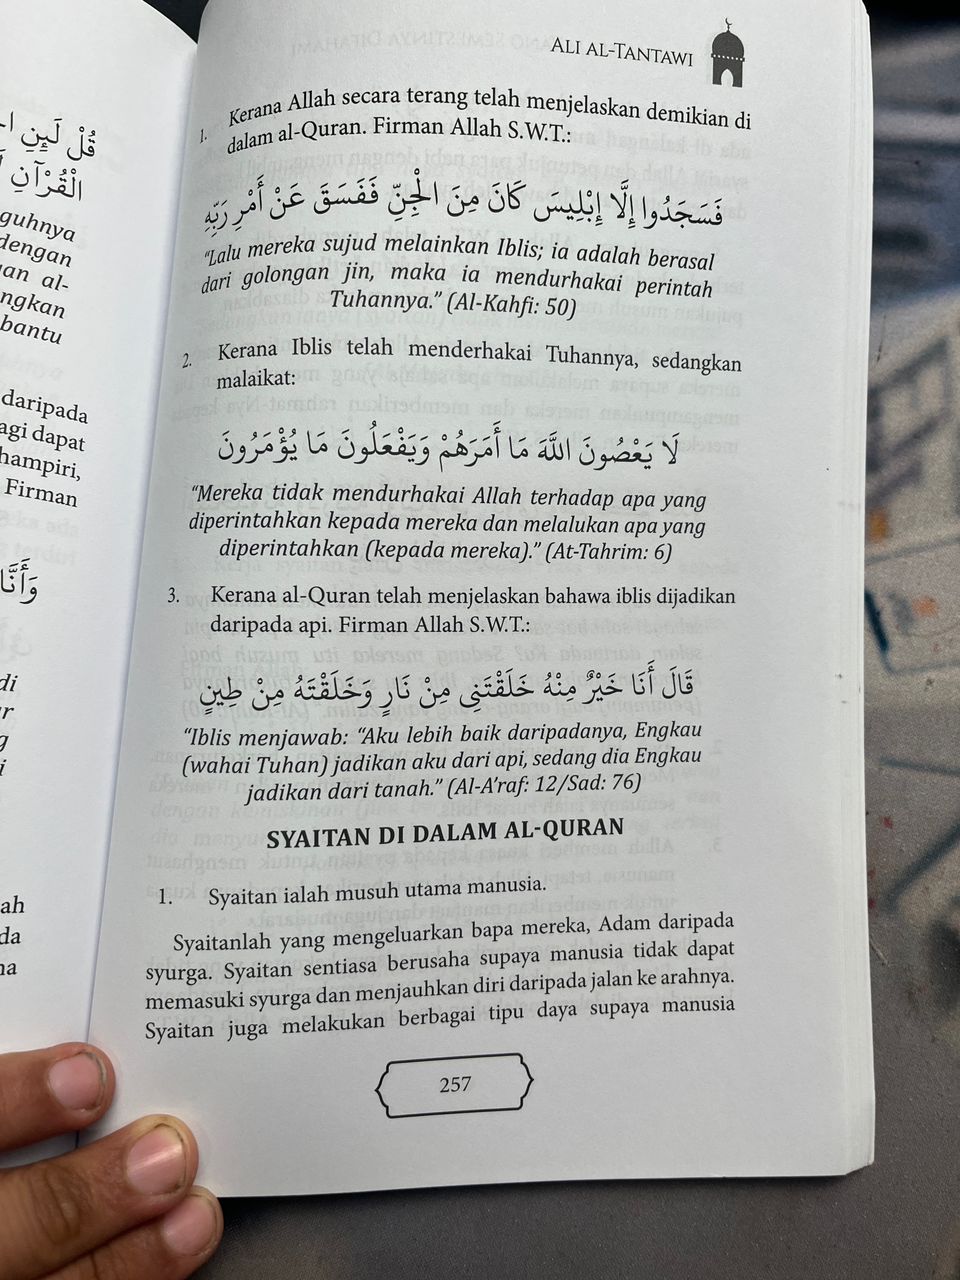 قُلْ لَئِنِ
الْقُرْآنِ
guhnya
dengan
an al-
ngkan
bantu
daripada
agi dapat
hampiri,
Firman
وَأَنَّا
di
r
g
i
ah
da
na
ALI AL-TANTAWI
1. Kerana Allah secara terang telah menjelaskan demikian di
dalam al-Quran. Firman Allah S.W.T.:
فَسَجَدُوا إِلَّا إِبْلِيسَ كَانَ مِنَ الْجِنِّ فَفَسَقَ عَنْ أَمْرِ رَبِّهِ
“Lalu mereka sujud melainkan Iblis; ia adalah berasal
dari golongan jin, maka ia mendurhakai perintah
Tuhannya.” (Al-Kahfi: 50)
2. Kerana Iblis telah menderhakai Tuhannya, sedangkan
malaikat:
لَا يَعْصُونَ اللَّهَ مَا أَمَرَهُمْ وَيَفْعَلُونَ مَا يُؤْمَرُونَ
“Mereka tidak mendurhakai Allah terhadap apa yang
diperintahkan kepada mereka dan melalukan apa yang
diperintahkan (kepada mereka).” (At-Tahrim: 6)
3. Kerana al-Quran telah menjelaskan bahawa iblis dijadikan
daripada api. Firman Allah S.W.T.:
قَالَ أَنَا خَيْرٌ مِنْهُ خَلَقْتَنِى مِنْ نَارٍ وَخَلَقْتَهُ مِنْ طِينٍ
“Iblis menjawab: “Aku lebih baik daripadanya, Engkau
(wahai Tuhan) jadikan aku dari api, sedang dia Engkau
jadikan dari tanah.” (Al-A’raf: 12/Sad: 76)
SYAITAN DI DALAM AL-QURAN
1. Syaitan ialah musuh utama manusia.
Syaitanlah yang mengeluarkan bapa mereka, Adam daripada
syurga. Syaitan sentiasa berusaha supaya manusia tidak dapat
memasuki syurga dan menjauhkan diri daripada jalan ke arahnya.
Syaitan juga melakukan berbagai tipu daya supaya manusia
257